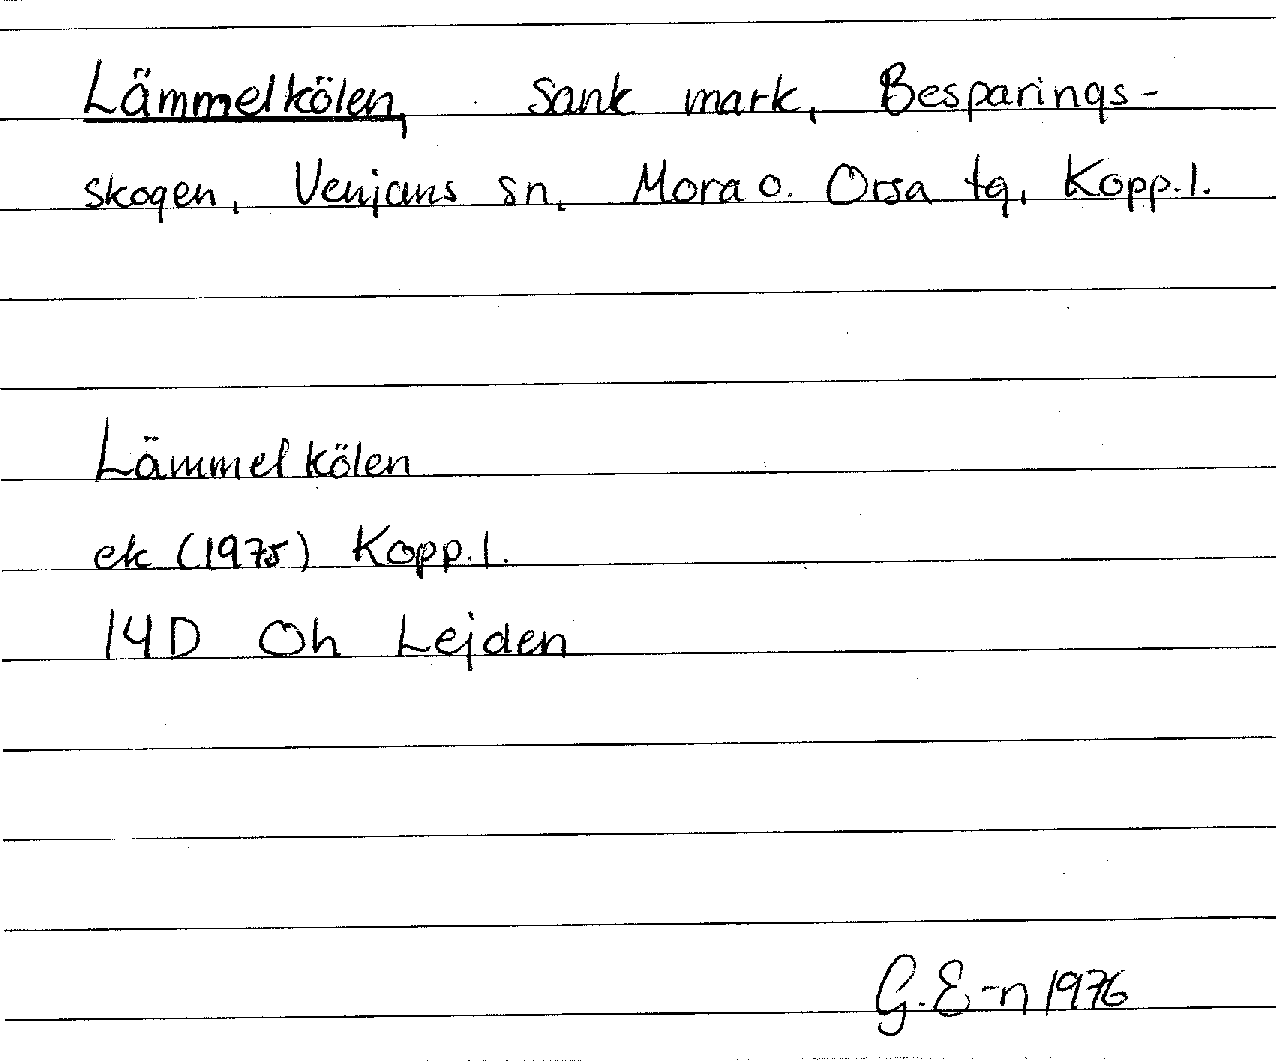 Lämmelkölen, Sank mark, Besparings-
skogen, Venjans sn, Mora o. Orsa tg, Kopp. l.
Lämmelkölen
ek (1975) Kopp. l.
14D Oh Lejden
G. E-n 1976